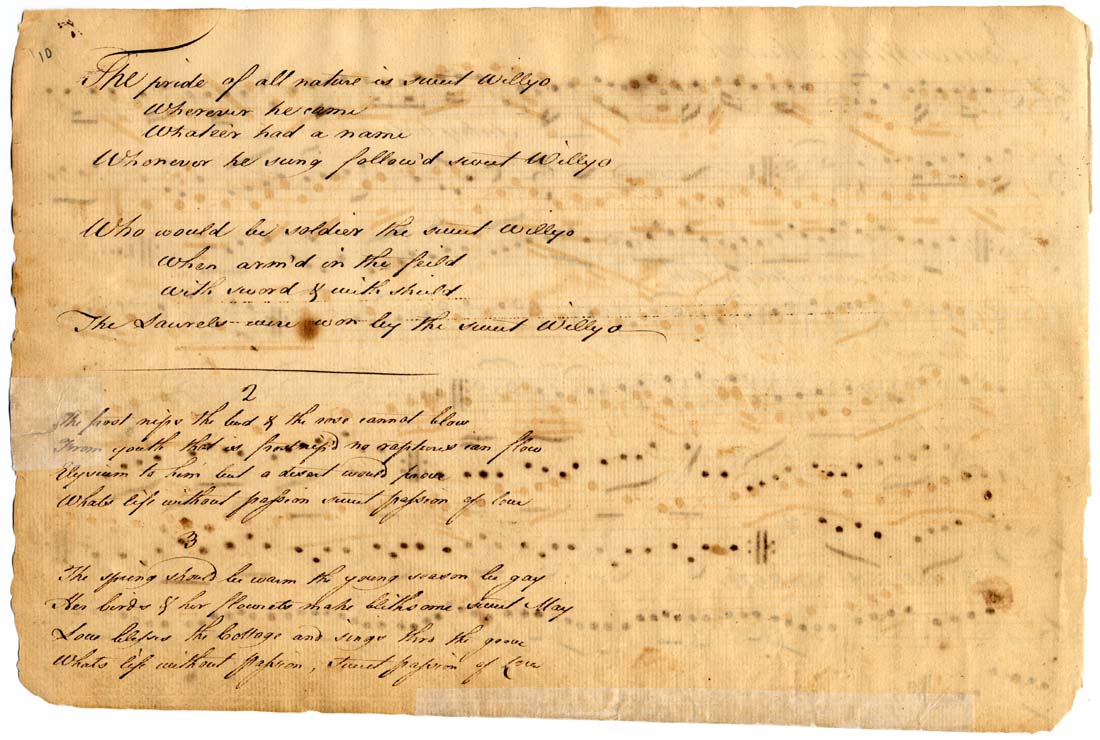 10
The pride of all nature is sweet Willyo
Wherever he came
Whateer had a name
Whenever he sung follow'd sweet Willyo
Who would be soldier the sweet Willyo
When arm'd in the feild
With sword & with shield
The Laurels were won by the sweet Willyo
2
The frost nips the bud & the rose cannot blow
From youth that is frost nip'd no raptures can flow
Elysium to him but a desert would prove
Whats life without passion sweet passion of love
3
The spring should be warm the young season be gay
Her birds & her flowrets make blithsome sweet May
Love blesses the Cottage and sings thro the grove
Whats life without passion, sweet passion of Love